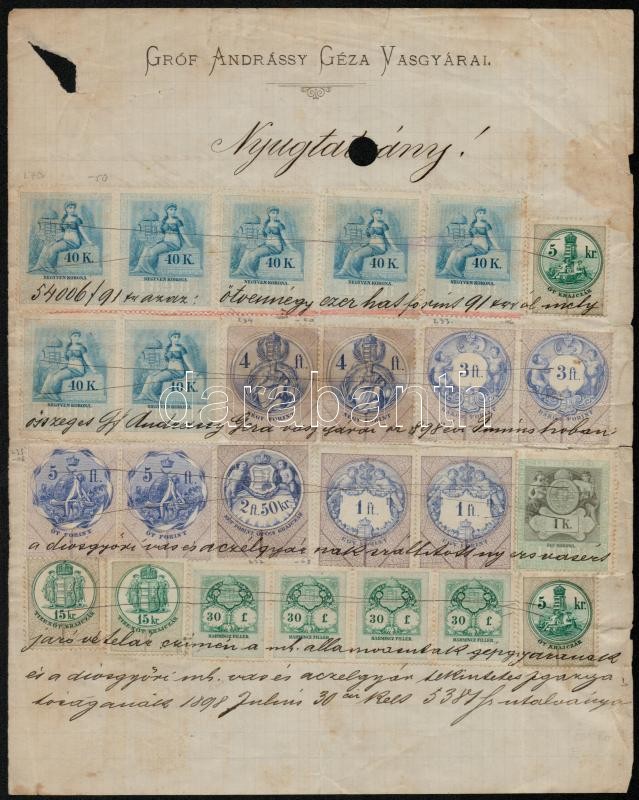 GRÓF ANDRÁSSY GÉZA VASGYÁRAI.
Nyugtatvány!
40 K. 40 K. 40 K. 40 K. 40 K. 5 kr.
NEGYVEN KORONA NEGYVEN KORONA NEGYVEN KORONA NEGYVEN KORONA NEGYVEN KORONA ÖT KRAJCZÁR
54006/91 kr azaz: ötvennégy ezer hat forint 91 kr ról, mely
40 K. 40 K. 4 ft. 4 ft. 3 ft. 3 ft.
NEGYVEN KORONA NEGYVEN KORONA NÉGY FORINT NÉGY FORINT HÁROM FORINT HÁROM FORINT
darabanth
összeget Gf Andrássy Géza vasgyárai az 898 évi Június hóban
5 ft. 5 ft. 2 ft. 50 kr. 1 ft. 1 ft. 1 K.
ÖT FORINT ÖT FORINT KÉT FORINT ÖTVEN KRAJCZÁR EGY FORINT EGY FORINT EGY KORONA
a diosgyőri vas és aczélgyárnak szállitott nyersvasért
15 kr. 15 kr. 30 f. 30 f. 30 f. 30 f. 5 kr.
TIZENÖT KRAJCZÁR TIZENÖT KRAJCZÁR HARMINCZ FILLÉR HARMINCZ FILLÉR HARMINCZ FILLÉR HARMINCZ FILLÉR ÖT KRAJCZÁR
járó vételár czimén a m. államvasutak gépgyárának
és a diosgyőri m. vas és aczélgyár tekintetes igazga
tóságának 1898 Julius 30 án kelt 5381 sz utalványa